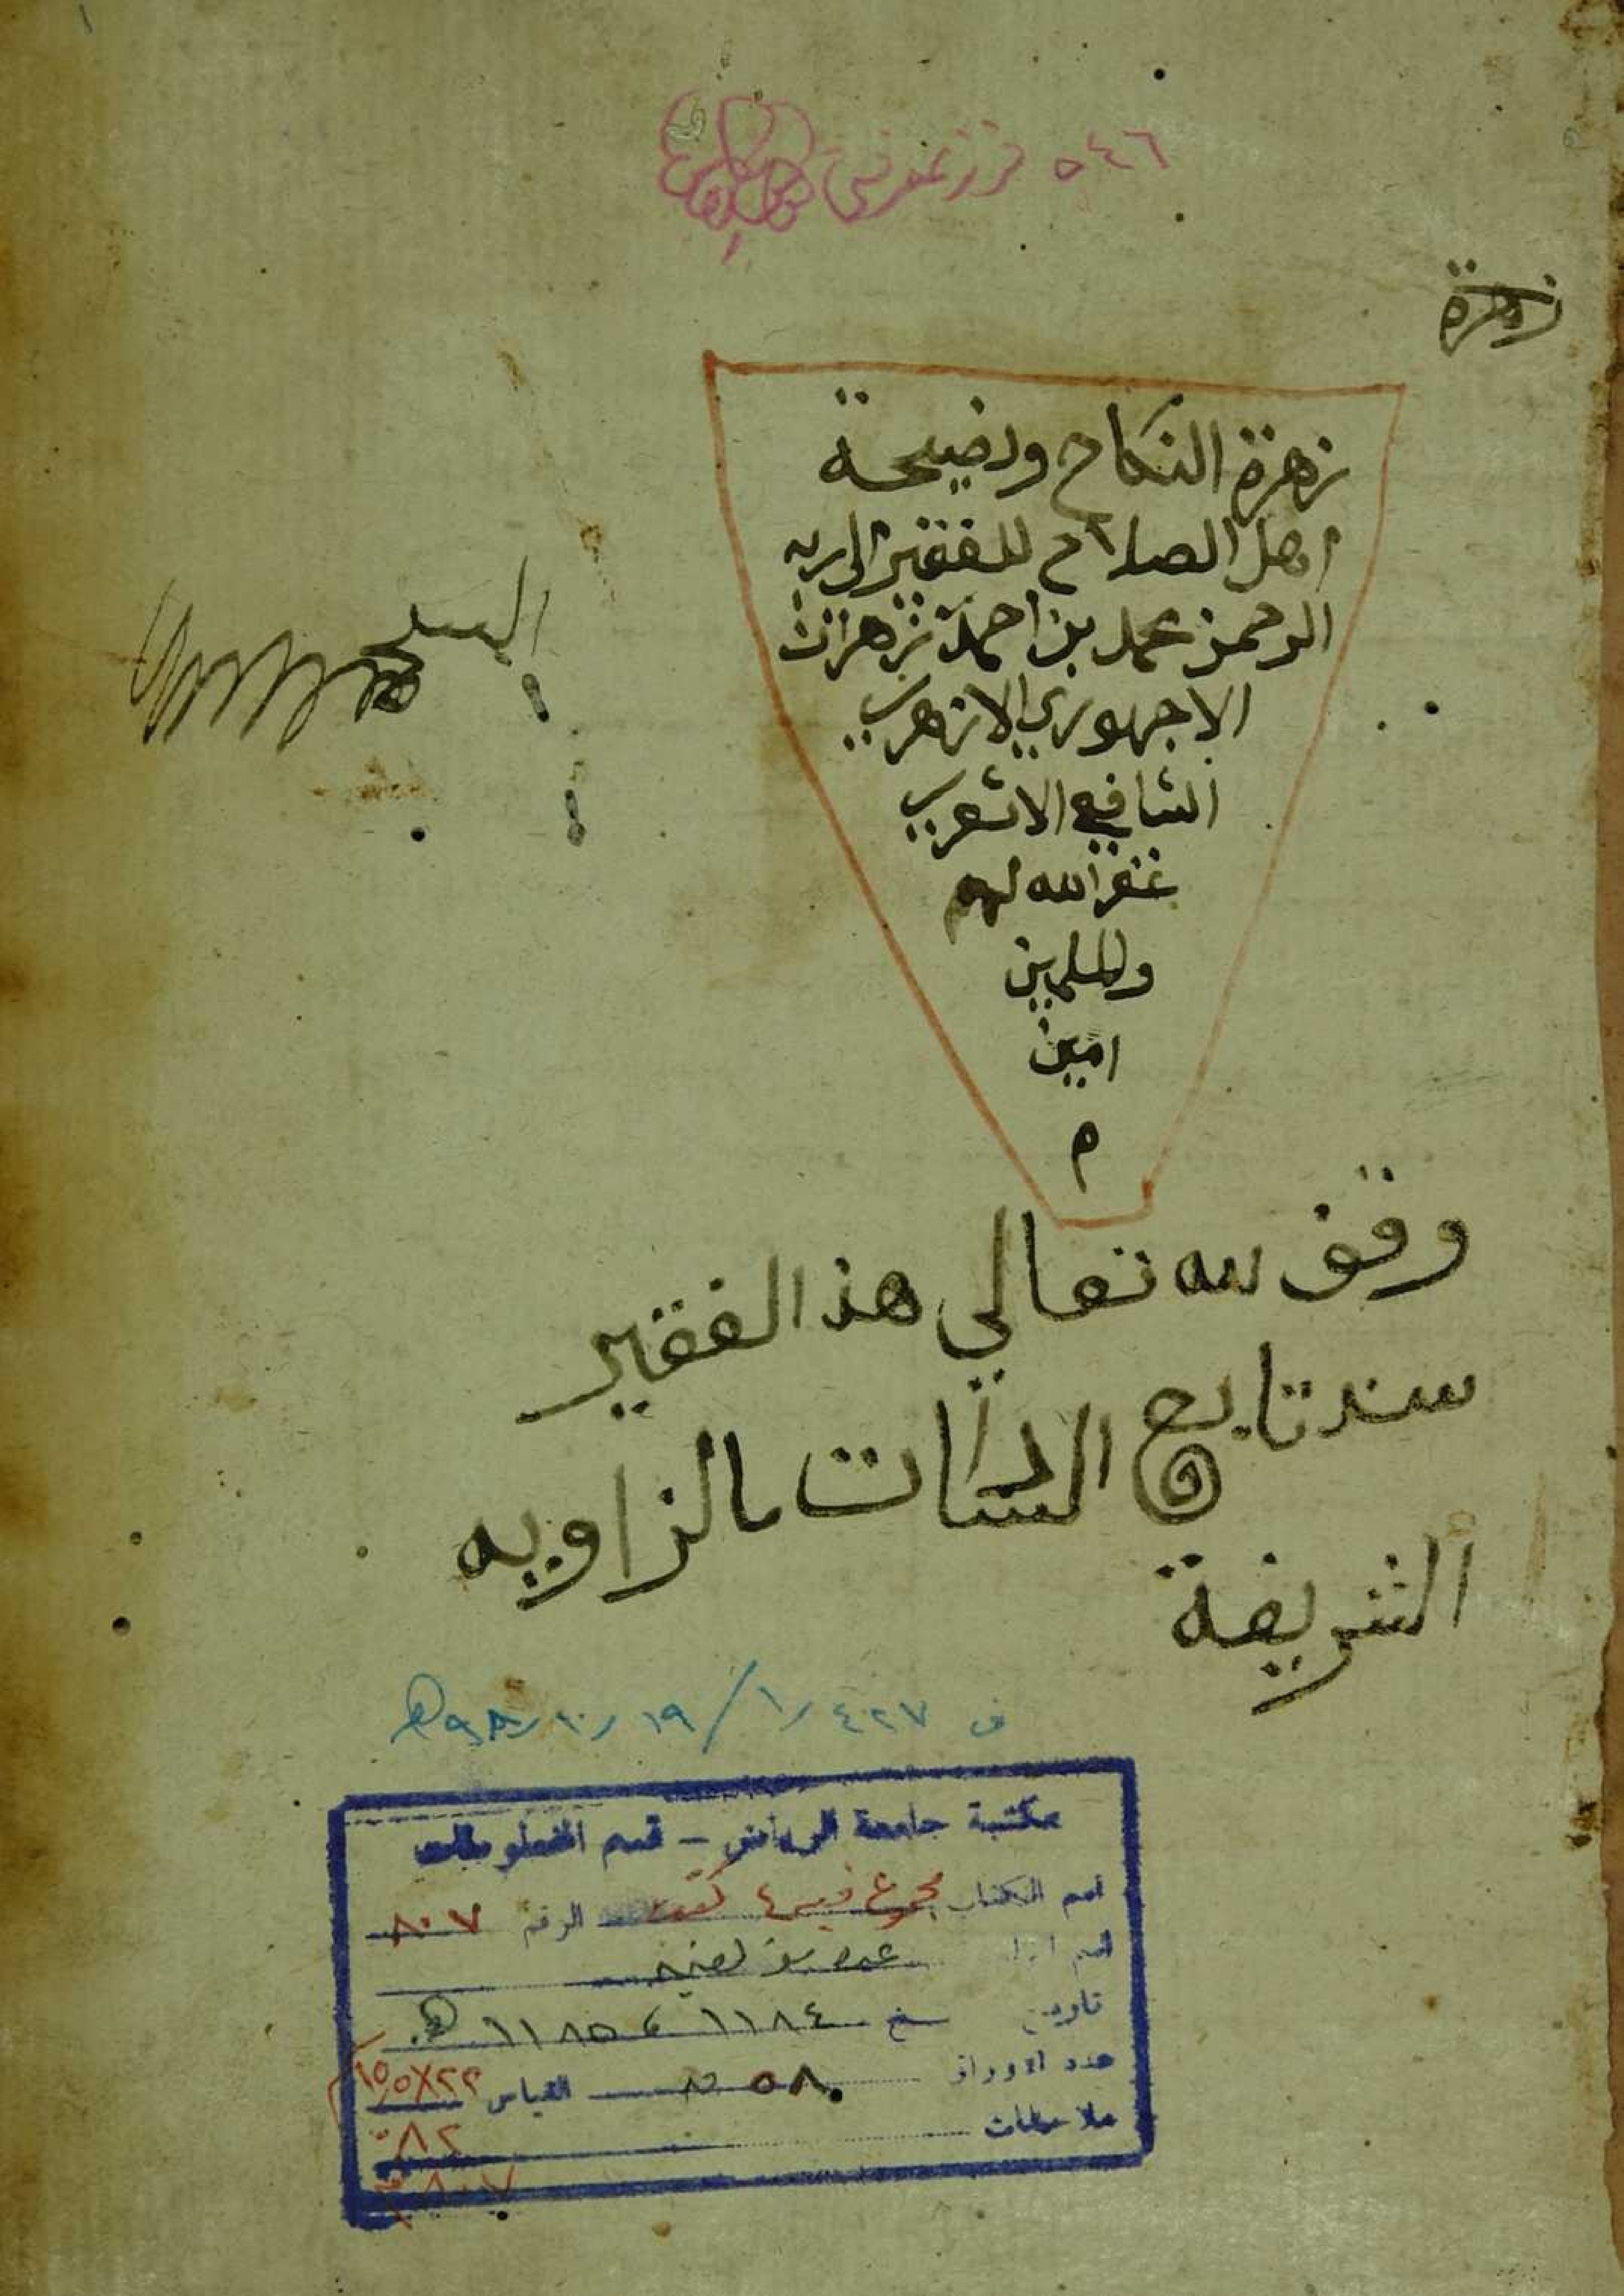 ٥٤٦
زهرة
زهرة النكاح ونصيحة
اهل الصلاح للفقير الى ربه
الرحمن محمد بن احمد زهران
الاجهوري الازهري
الشافعي الاشعري
غفر الله لهم
والمسلمين
امين
م
وقف لله تعالي هذ الفقير
سند تابع السادات بالزاويه
الشريفة
ف ٤٢٧ / ١ / ١٩ / ١٠ / ٩٨ هـ
مكتبة جامعة الرياض - قسم المخطوطات
اسم الكتاب مجموع فيه ٤ كتب الرقم ٨٠٧
اسم
تاريخ نسخ ١١٨٤ ، ١١٨٥ هـ
عدد الاوراق ٥٨ القياس ٢٢×١٥٫٥
ملاحظات
٨٠٧